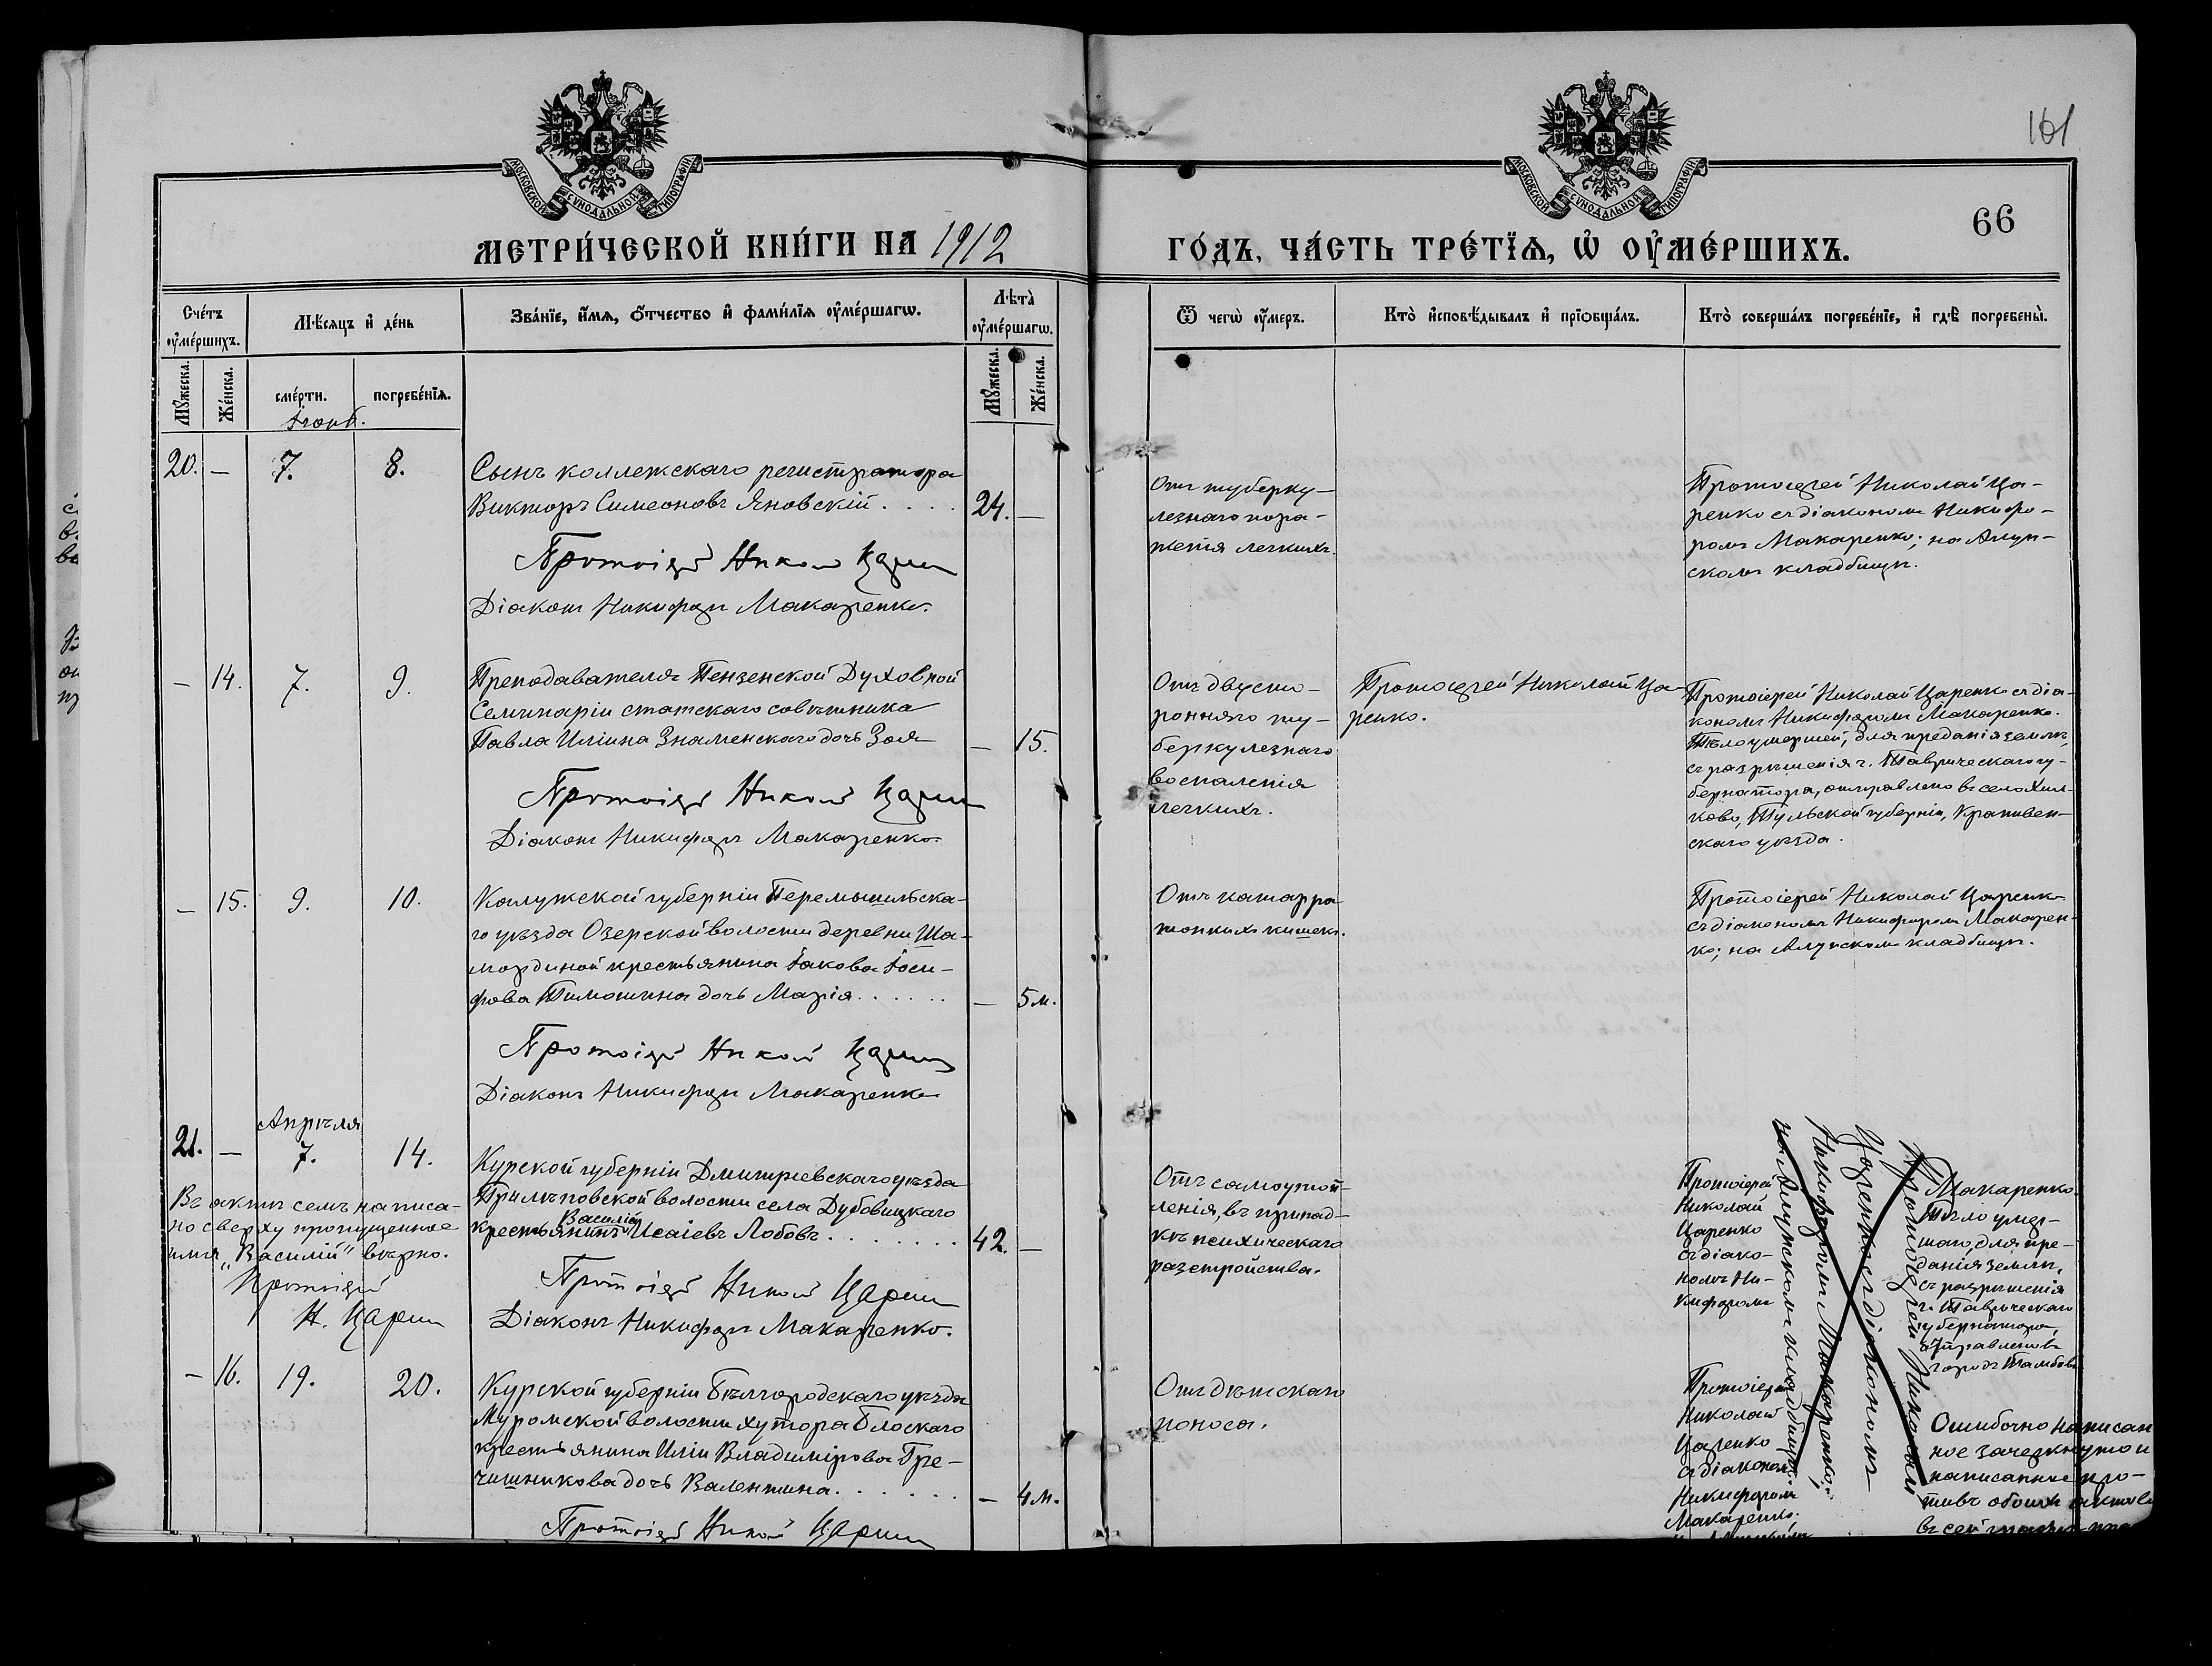 161
66
МОСКОВСКОЙ СѴНОДАЛЬНОЙ ТИПОГРАФІИ
МОСКОВСКОЙ СѴНОДАЛЬНОЙ ТИПОГРАФІИ
МЕТРИ́ЧЕСКОЙ КНИ́ГИ НА 1912
ГО́ДЪ, ЧА́СТЬ ТРЕ́ТЇѦ, Ѡ҆ ОУ҆МЕ́РШИХЪ.
Сче́тъ оу҆ме́ршихъ.
Мѣ́сяцъ и҆ де́нь
Зва́нїе, и҆́мѧ, ѻ҆́тчество и҆ фами́лїѧ оу҆ме́ршагѡ.
Лѣ́та̀ оу҆ме́ршагѡ.
Ѿ чегѡ̀ оу҆́меръ.
Кто̀ и҆сповѣ́дывалъ и҆ прїѻбща́лъ.
Кто̀ соверша́лъ погребе́нїе, и҆ гдѣ̀ погребены̀.
Мꙋ́жеска.
Же́нска.
сме́рти.
погребе́нїѧ.
Мꙋ́жеска.
Же́нска.
20. — 7. 8.
Сынъ коллежскаго регистратора
Викторъ Симеоновъ Яновскій . . . . 24. —
Протоіерей Николай Царенко
Діаконъ Никифоръ Макаренко.
Отъ туберку-
лезнаго пора-
женія легкихъ.
Протоіерей Николай Ца-
ренко съ діакономъ Никифо-
ромъ Макаренко; на Алуп-
скомъ кладбищѣ.
— 14. 7. 9.
Преподавателя Пензенской Духовной
Семинаріи статскаго совѣтника
Павла Иліина Знаменскаго дочь Зоя — 15.
Протоіерей Николай Царенко
Діаконъ Никифоръ Макаренко.
Отъ двусто-
ронняго ту-
беркулезнаго
воспаленія
легкихъ.
Протоіерей Николай Ца-
ренко.
Протоіерей Николай Царенко съ діа-
кономъ Никифоромъ Макаренко.
Тѣло умершей, для преданія землѣ,
съ разрѣшенія г. Таврическаго гу-
бернатора, отправлено въ село Хил-
ково, Тульской губерніи, Крапивен-
скаго уѣзда.
— 15. 9. 10.
Калужской губерніи Перемышльска-
го уѣзда Озерской волости деревни Ша-
мординой крестьянина Іакова Іоси-
фова Тимошина дочь Марія . . . . . . — 5 м.
Протоіерей Николай Царенко
Діаконъ Никифоръ Макаренко
Отъ катарра
тонкихъ кишекъ.
Протоіерей Николай Царенко
съ діакономъ Никифоромъ Макарен-
ко; на Алупскомъ кладбищѣ.
Апрѣля
21. — 7. 14.
Курской губерніи Дмитріевскаго уѣзда
села Дубовицкаго
Василій
крестьянинъ Исаіевъ Лобовъ . . . . . . . . 42. —
Протоіерей Николай Царенко
Діаконъ Никифоръ Макаренко.
Въ актѣ семъ написа-
но сверху пропущенное
имя „Василій“ вѣрно.
Протоіерей
Н. Царенко
психическаго
разстройства.
Протоіерей
Николай
Царенко
съ діако-
номъ Ни-
кифоромъ
Макаренко.
Тѣло умер-
шаго, для пре-
данія землѣ,
съ разрѣшенія
г. Таврическаго
губернатора,
отправлено въ
городъ Тамбовъ
Протоіерей Николай
Царенко съ діакономъ
Никифоромъ Макаренко;
на Алупскомъ кладбищѣ.
— 16. 19. 20.
Курской губерніи Бѣлгородскаго уѣзда
Муромской волости хутора
крестьянина Иліи Владимірова Гре-
чишникова дочь Валентина . . . . . . — 4 м.
Протоіерей Николай Царенко
Отъ дѣтскаго
поноса.
Протоіерей
Николай
Царенко
съ діакономъ
Никифоромъ
Макаренко;
Ошибочно написан-
ное зачеркнуто и
написанное про-
тивъ обоихъ актовъ
въ сей